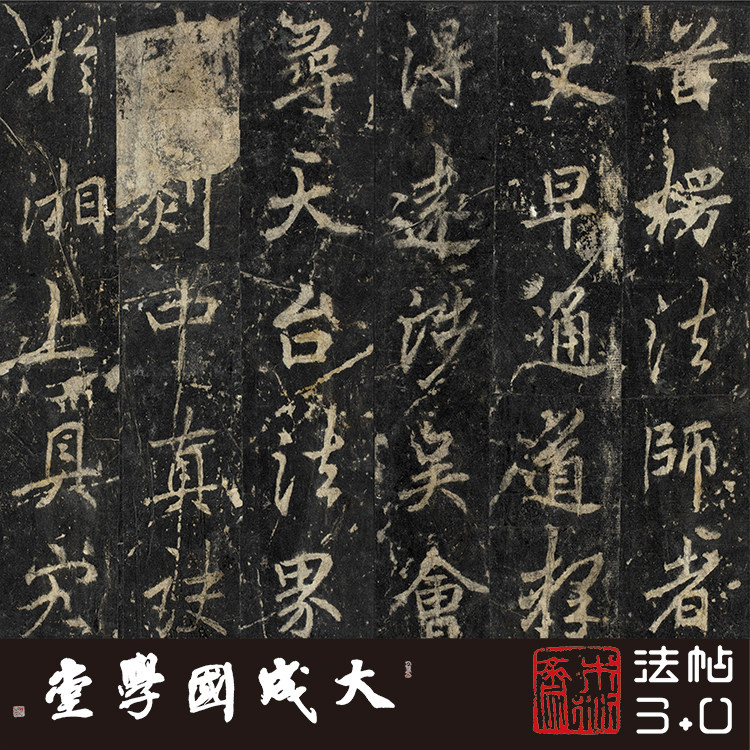 首楞法師者
史早通道釋
得遠涉吳會
尋天台法界
剡中真訣
於湘上具究
大成國學堂
法帖
3.0